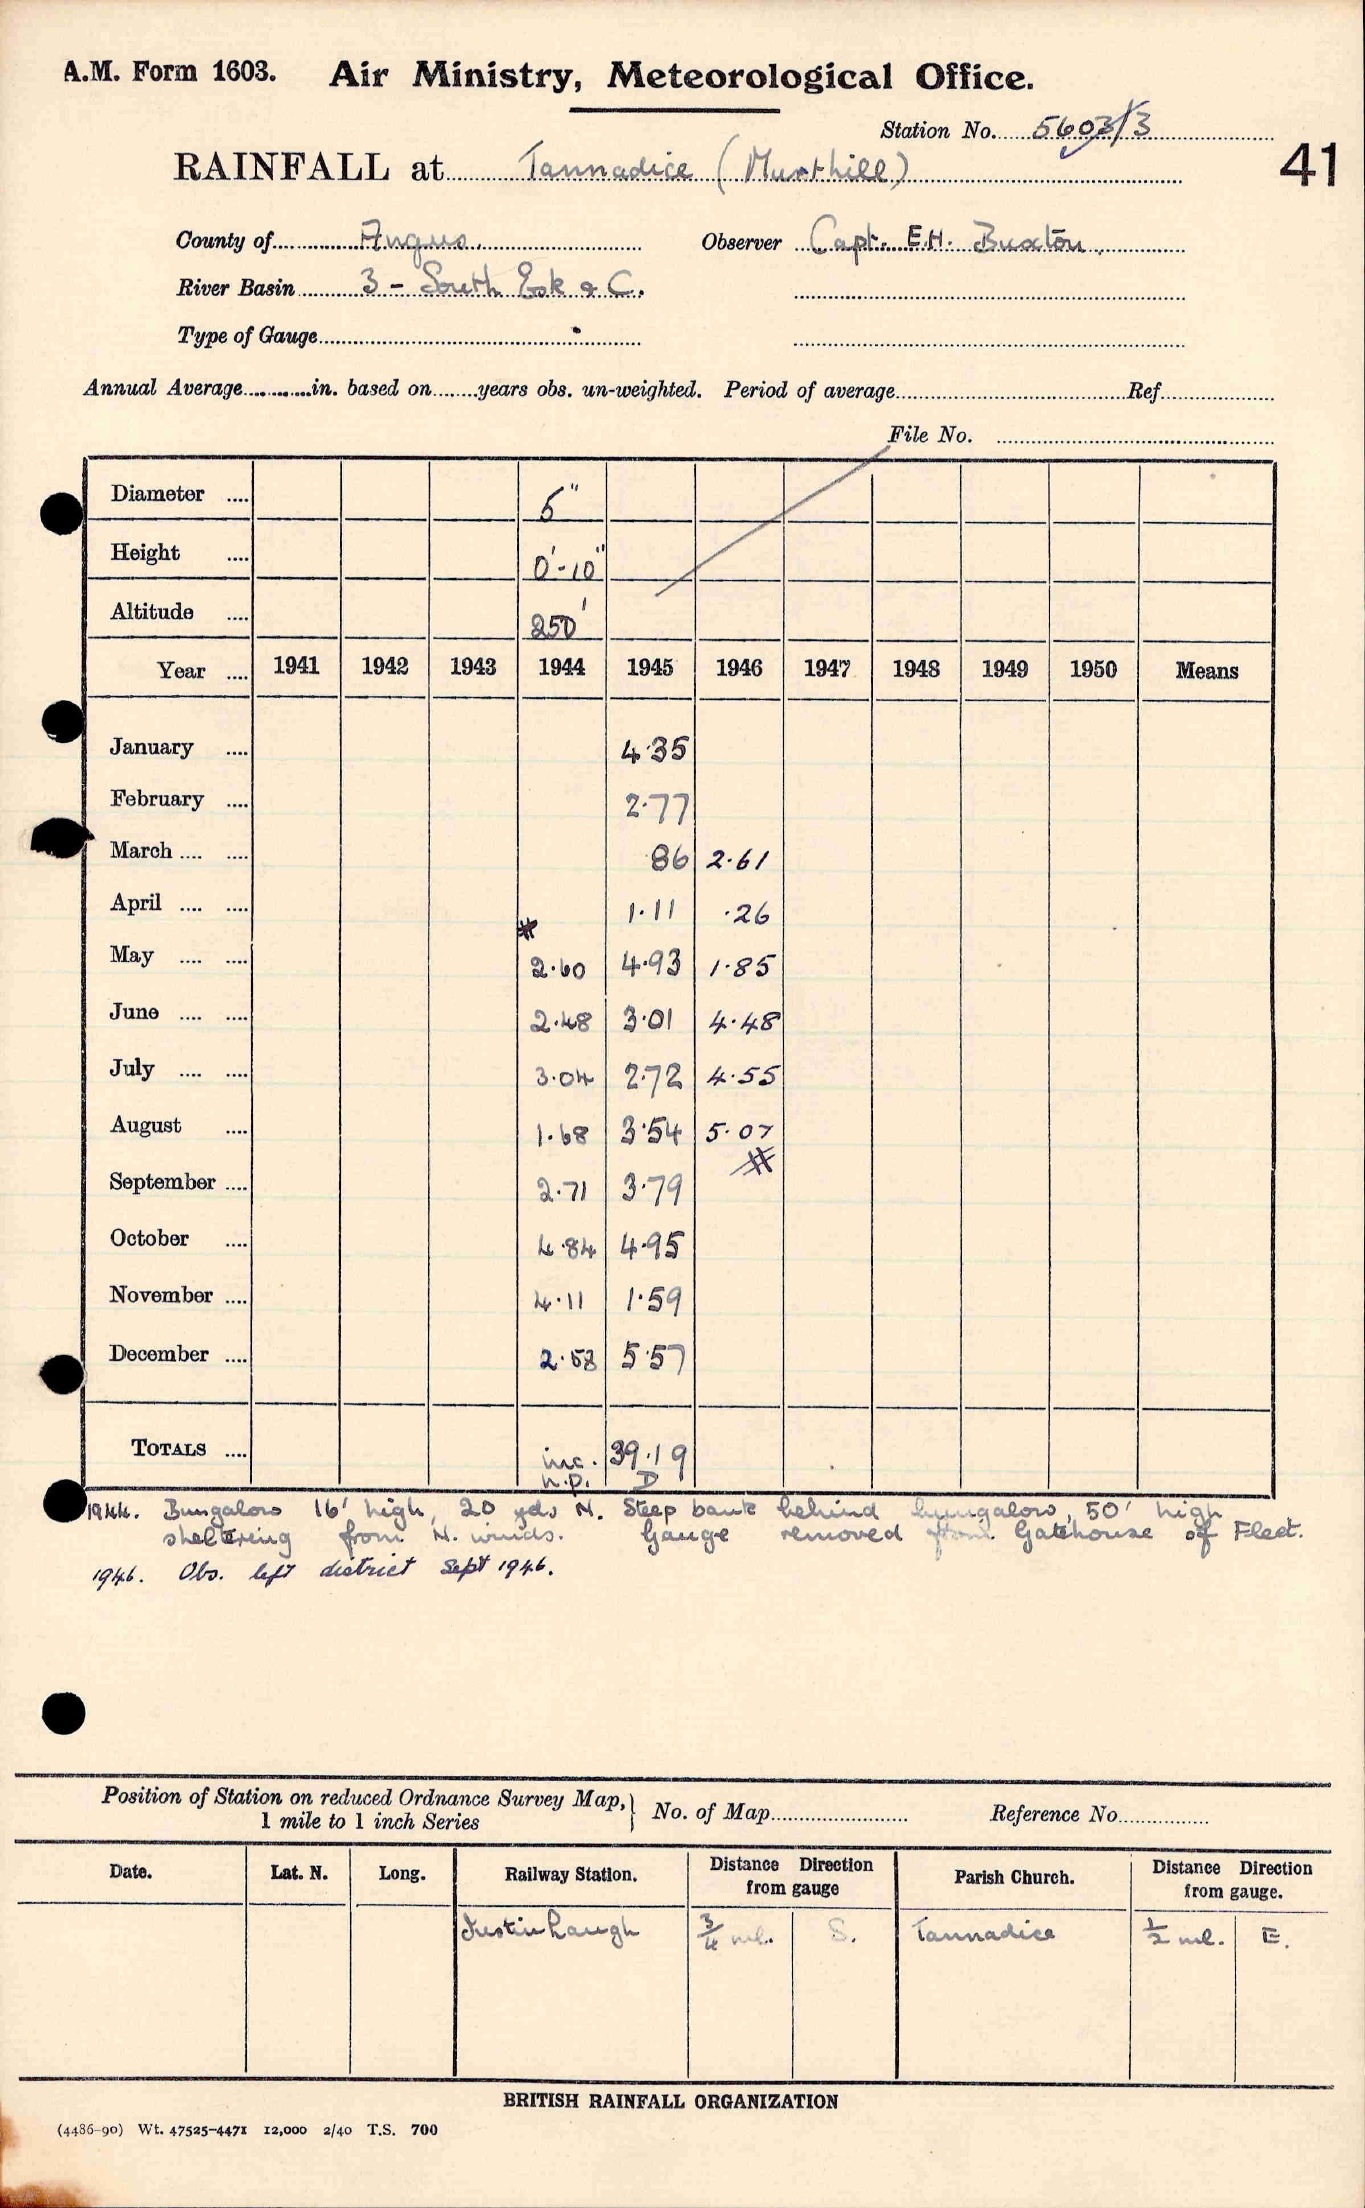 A.M. Form 1603. Air Ministry, Meteorological Office.
Station No. 5603/3
41
RAINFALL at Tannadice (Murthill)
County of Angus. Observer Capt. E.H. Buxton.
River Basin 3 - South Esk & C.
Type of Gauge
Annual Average in. based on years obs. un-weighted. Period of average Ref
File No.
Diameter 5"
Height 0'-10"
Altitude 250'
Year 1941 1942 1943 1944 1945 1946 1947 1948 1949 1950 Means
January 4.35
February 2.77
March 86 2.61
April 1.11 .26
May 2.60 4.93 1.85
June 2.48 3.01 4.48
July 3.04 2.72 4.55
August 1.68 3.54 5.07
September 2.71 3.79
October 4.84 4.95
November 4.11 1.59
December 2.58 5.57
TOTALS inc. 39.19
n.p. D
1944. Bungalow 16' high, 20 yds N. Steep bank behind bungalow, 50' high
sheltering from N. winds. Gauge removed from Gatehouse of Fleet.
1946. Obs. left district Sept 1946.
Position of Station on reduced Ordnance Survey Map, No. of Map Reference No.
1 mile to 1 inch Series
Date. Lat. N. Long. Railway Station. Distance Direction from gauge Parish Church. Distance Direction from gauge.
Justinhaugh 3/4 ml. S. Tannadice 1/2 ml. E.
BRITISH RAINFALL ORGANIZATION
(4486-90) Wt. 47525-4471 12,000 2/40 T.S. 700